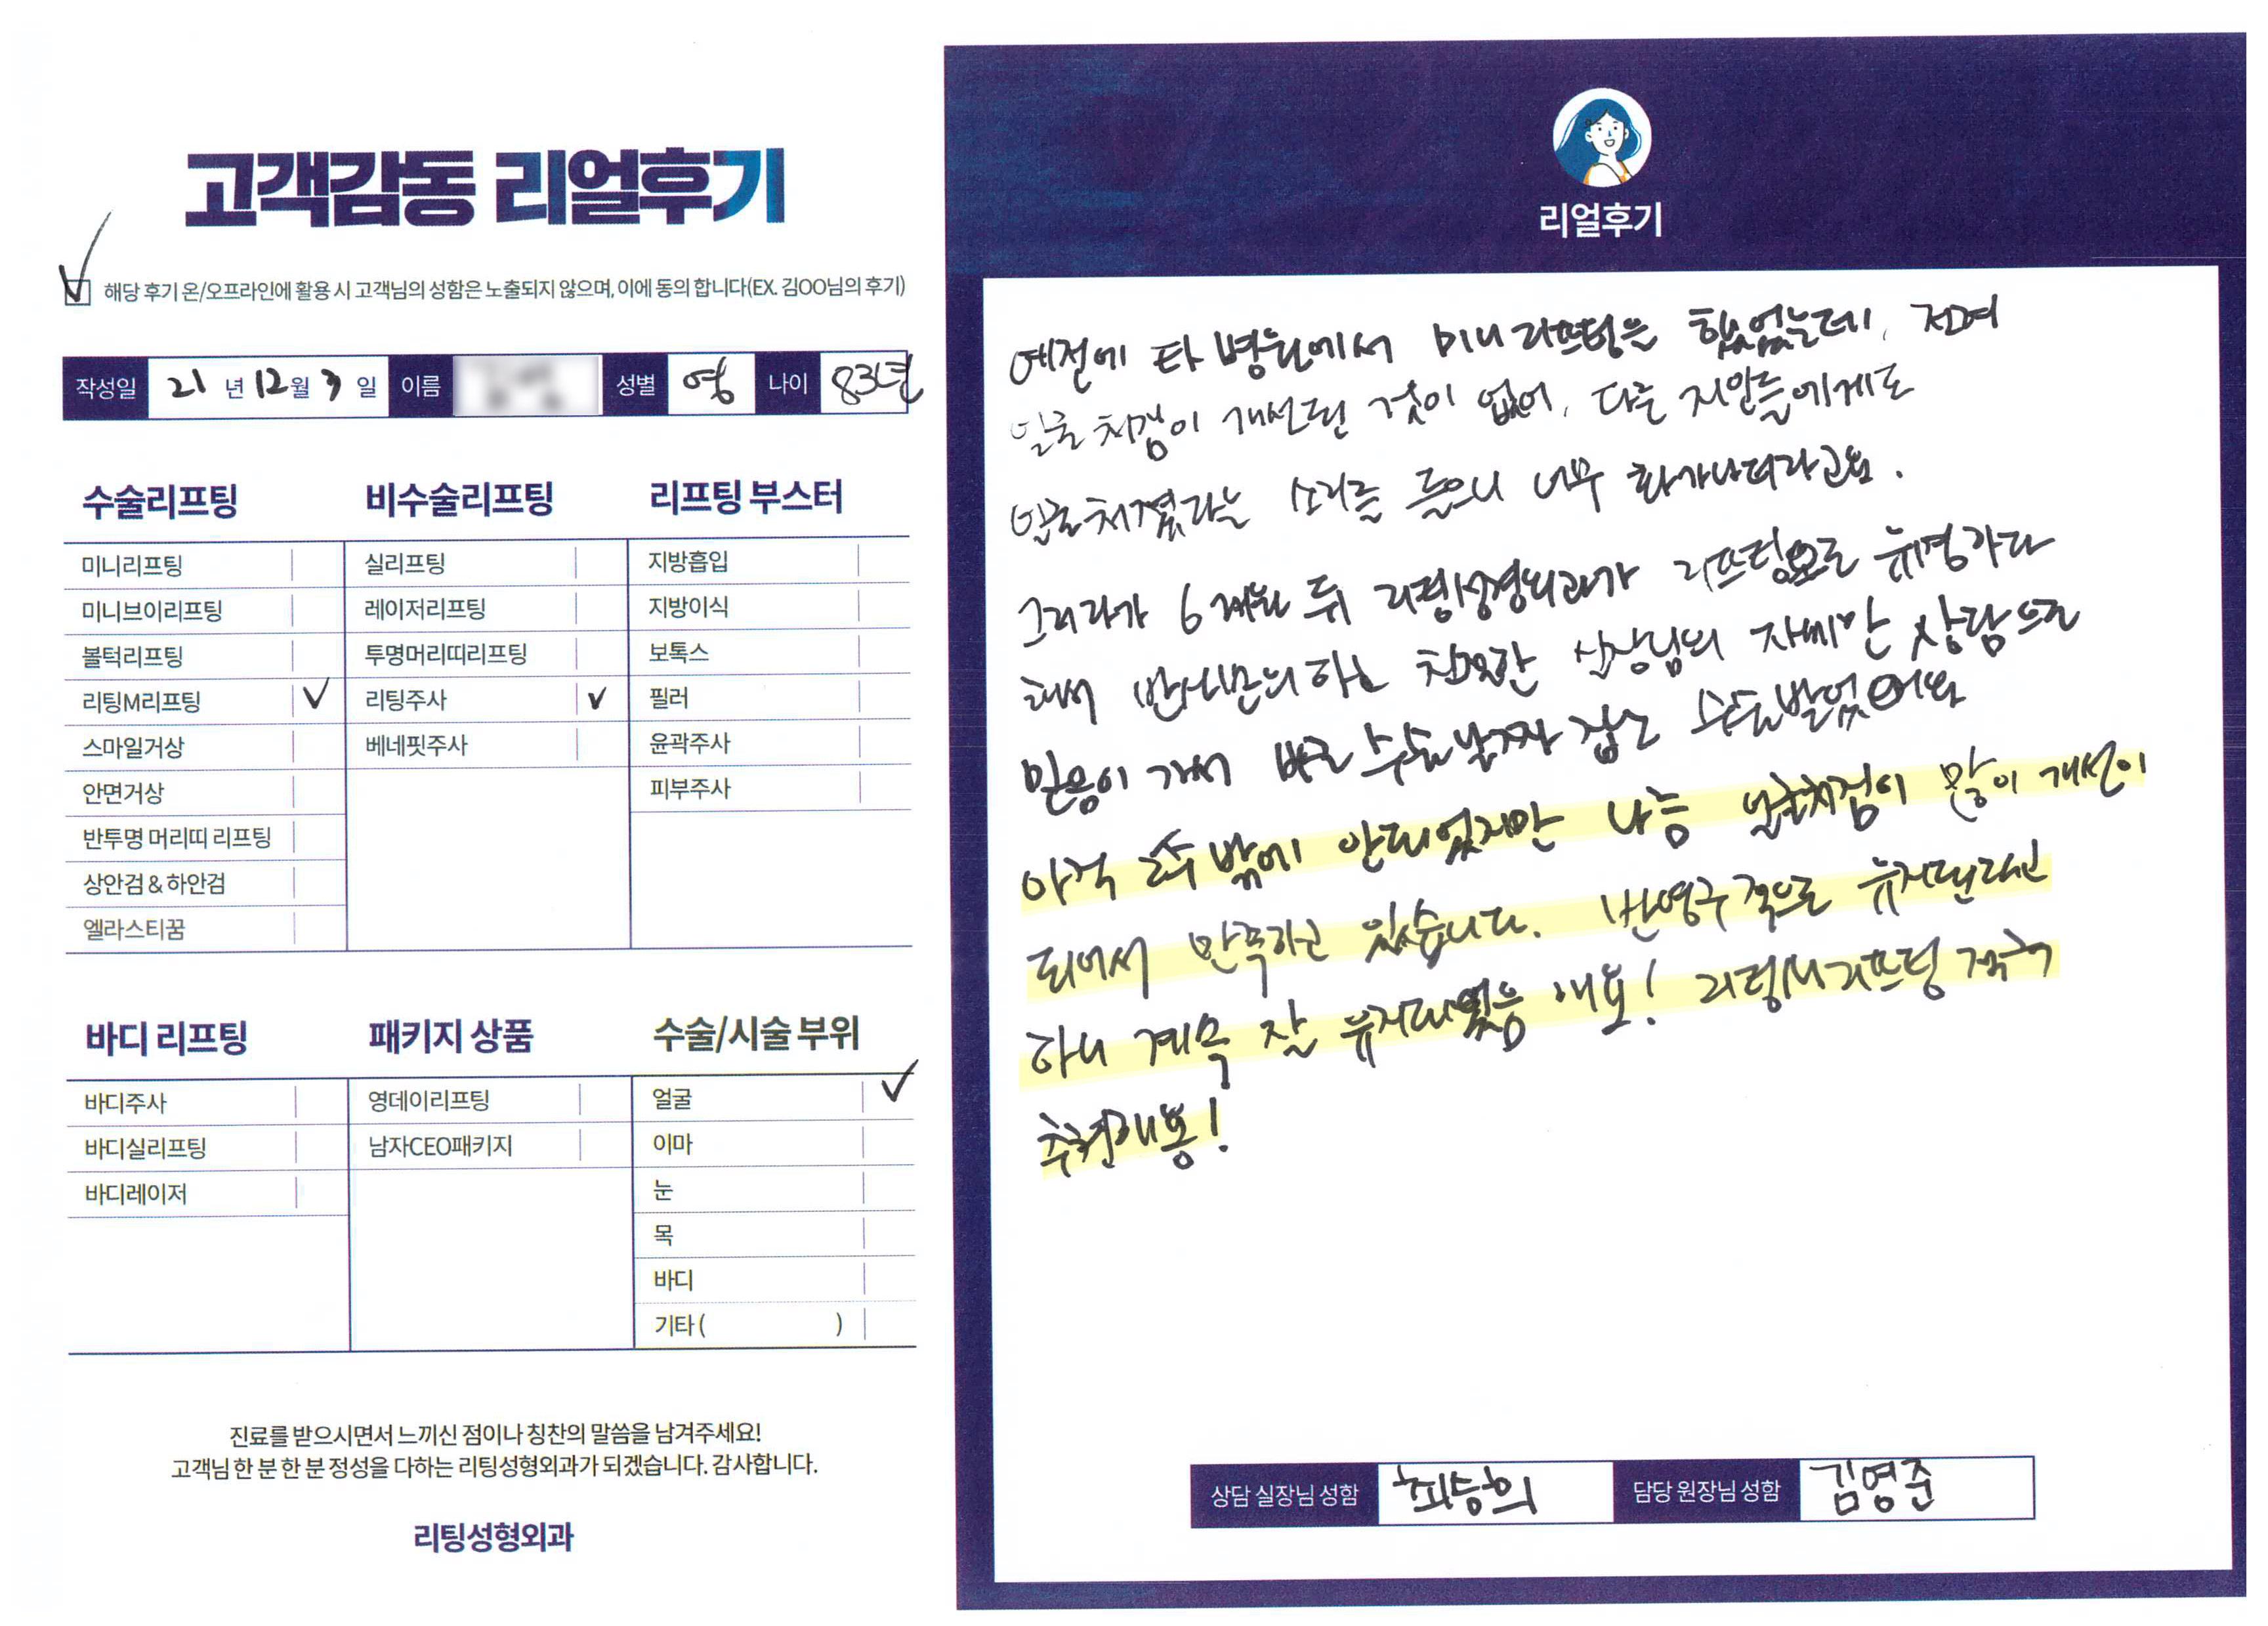 고객감동 리얼후기
해당 후기 온/오프라인에 활용 시 고객님의 성함은 노출되지 않으며, 이에 동의 합니다(EX. 김OO님의 후기)
작성일 21 년 12 월 3 일 이름 성별 여 나이 83년
수술리프팅
미니리프팅
미니브이리프팅
볼턱리프팅
리팅M리프팅 ✓
스마일거상
안면거상
반투명 머리띠 리프팅
상안검 & 하안검
엘라스티꿈
비수술리프팅
실리프팅
레이저리프팅
투명머리띠리프팅
리팅주사 ✓
베네핏주사
리프팅 부스터
지방흡입
지방이식
보톡스
필러
윤곽주사
피부주사
바디 리프팅
바디주사
바디실리프팅
바디레이저
패키지 상품
영데이리프팅
남자CEO패키지
수술/시술 부위
얼굴 ✓
이마
눈
목
바디
기타 ( )
진료를 받으시면서 느끼신 점이나 칭찬의 말씀을 남겨주세요!
고객님 한 분 한 분 정성을 다하는 리팅성형외과가 되겠습니다. 감사합니다.
리팅성형외과
리얼후기
예전에 타 병원에서 미니리프팅을 했었는데, 전혀
얼굴 처짐이 개선된 것이 없어, 다른 지인들에게도
얼굴처졌다는 소리를 들으니 너무 화가나더라고요.
그러다가 6개월 뒤 리팅성형외과가 리프팅으로 유명하다
해서 반신반의하고 친절한 실장님의 자세한 상담으로
믿음이 가서 바로 수술날짜 잡고 수술받었어요
아직 2주 밖에 안되었지만 나름 얼굴처짐이 많이 개선이
되어서 만족하고 있습니다. 반영구적으로 유지된다고
하니 계속 잘 유지되었음 해요! 리팅M리프팅 적극
추천해용!
상담 실장님 성함 최승희 담당 원장님 성함 김영준